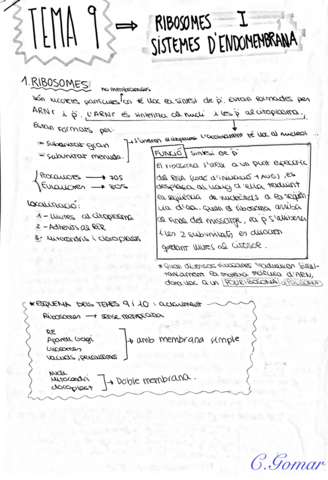 TEMA 9 → RIBOSOMES I
SISTEMES D'ENDOMEMBRANA
1. RIBOSOMES no membranoses
són estructures on té lloc la síntesi de p. Estan formades per
ARNr i p. L'ARNr es sintetitza al nucli i les p al citoplasma.
Estan formats per: s'uneixen al citoplasma
- Subunitat gran
- Subunitat menuda
Procariotes → 70S
Eucariotes → 80S
Localització:
1- Lliures al citoplasma
2- Adherits al RER
3- Mitocondris i cloroplasts
FUNCIÓ síntesi de p
El ribosoma s'uneix a un punt específic
de RNA i es
desplaça al llarg d'ella traduint
la seqüència de nucleòtids a la seqüèn-
cia d'aa. Quan el ribosoma arriba
al final del missatge, la p s'allibera
i les 2 subunitats es dissocien
quedant lliures al citosol.
* Quan diversos ribosomes tradueixen simul-
tàniament la mateixa molècula d'ARN,
dona lloc a un POLIRIBOSOMA o POLISOMA
* ESQUEMA DELS TEMES 9 i 10:
Ribosomes → sense membrana
RE
Aparell Golgi
Lisosomes
vacuols, peroxisomes
→ amb membrana simple
Nucli
Mitocondri
cloroplast
→ Doble membrana.
C.Gomar